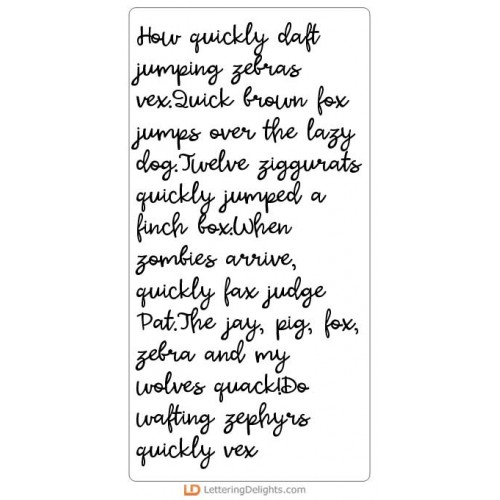 How quickly daft
jumping zebras
vex.Quick brown fox
jumps over the lazy
dog.Twelve ziggurats
quickly jumped a
finch box.When
zombies arrive,
quickly fax judge
Pat.The jay, pig, fox,
zebra and my
wolves quack!Do
wafting zephyrs
quickly vex
LD LetteringDelights.com